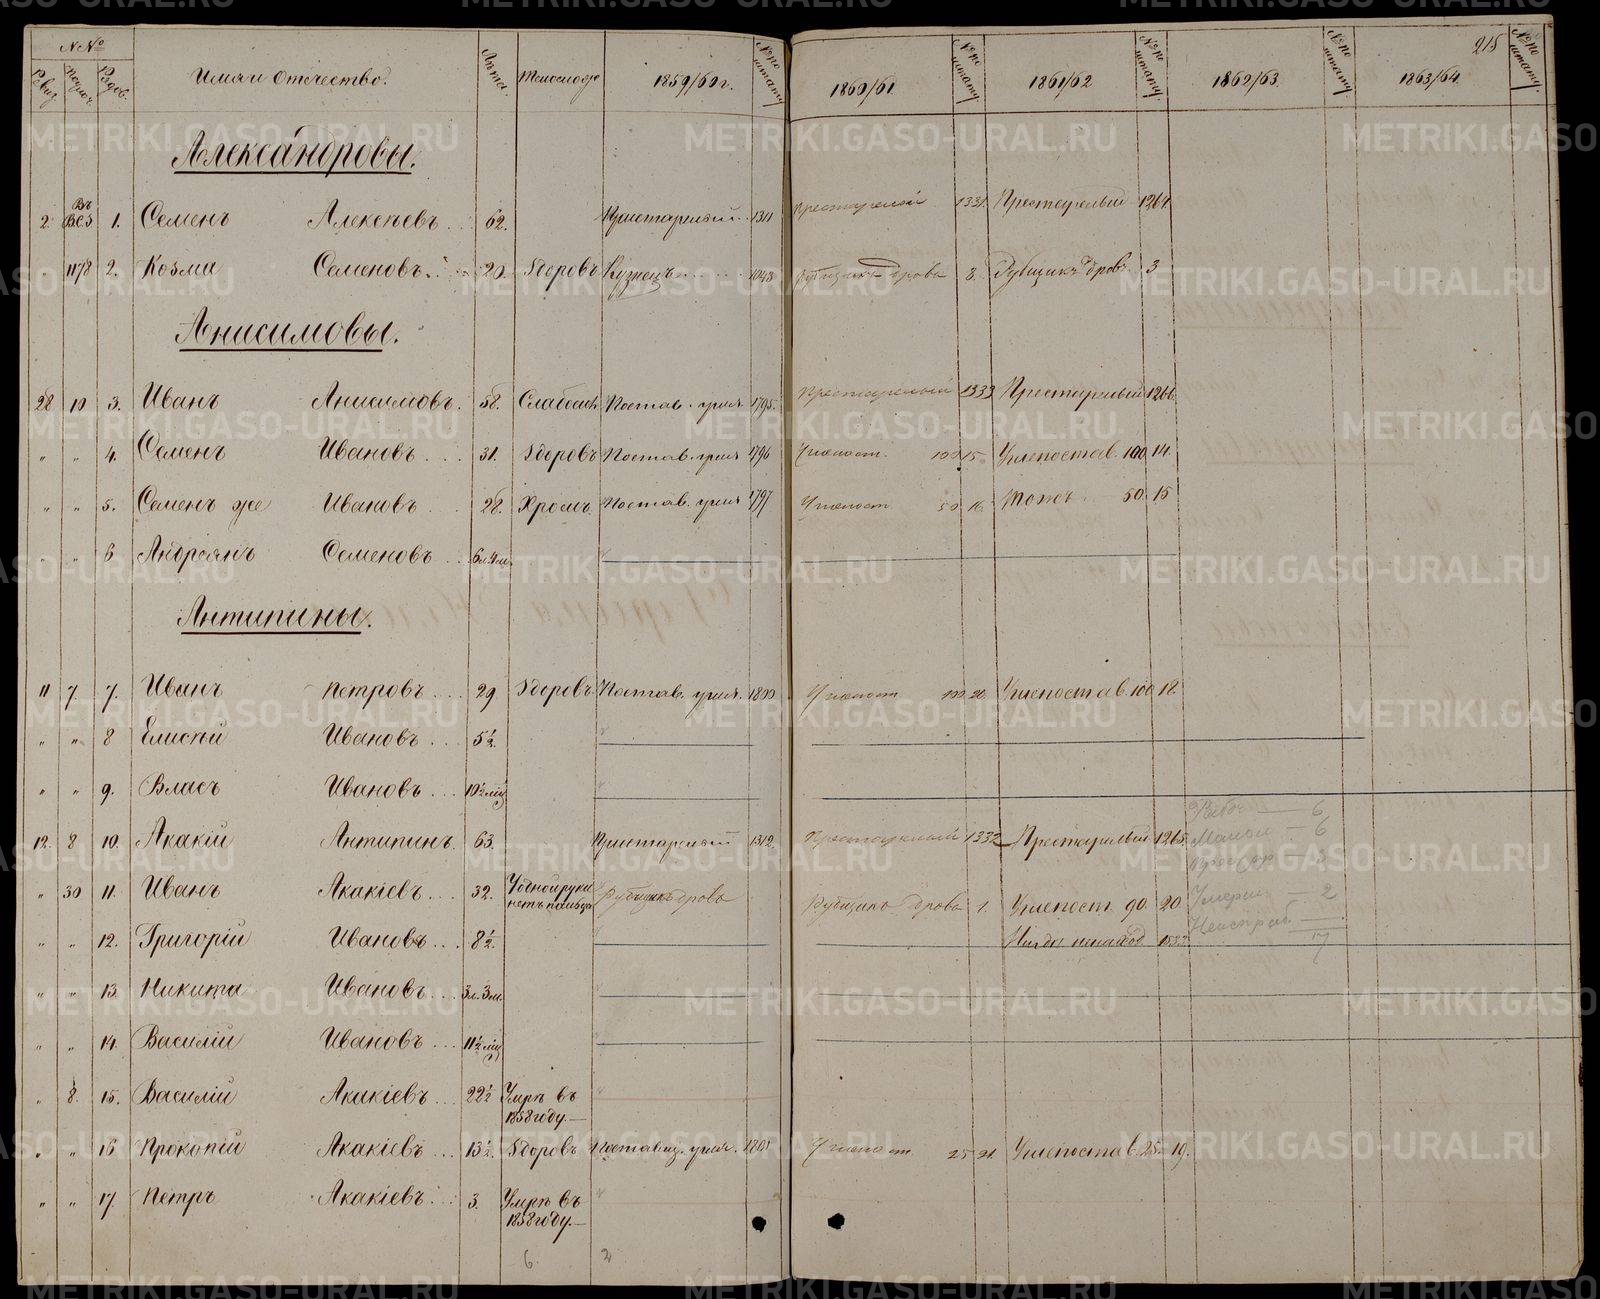 N Nо Имя и Отчество. Лѣта. 1859/60 г. №по штату 1860/61 №по штату. 1861/62 №по штату. 1862/63. №по штату. 1863/64. №по штату. 215
Александровы.
2. Въ В.С.З 1. Семенъ Алексѣевъ . . 62. Престарелый 1311 Престарелой 1331. Престарелый 1264.
" 1178 2. Козма Семеновъ. . . 20. Здоровъ Кузнецъ 1043 Рубщикъ дровъ 8. Рубщикъ дровъ 3
Анисимовы.
28 10 3. Иванъ Анисимовъ. 58. Постав. угля 1795. Престарелый 1333 Престарелый 1266
" " 4. Семенъ Ивановъ . . . 31. Здоровъ Постав. угля 1796 Углепост. 100 15. Углепостав. 100. 14.
" " 5. Семенъ же Ивановъ . . 28. Хромъ Постав. угля 1797 Углепост. 50 16. Тоже 50. 15
" " 6 Андреянъ Семеновъ . . 6л.4м.
Антипины.
11 7 7. Иванъ Петровъ . . . 29 Здоровъ Постав. угля. 1800 Углепост 100 20. Углепостав. 100 18.
" " 8 Елисѣй Ивановъ . . . 5½.
" " 9. Власъ Ивановъ . . . 10½ мѣс
12. 8 10. Акакій Антипинъ. 63. Престарелый 1312. Престарелый 1332 Престарелый 1265.
" 30 11. Иванъ Акакіевъ . . . 32. У одной руки нетъ пальца Рубщикъ дровъ Рубщикъ дровъ 1. Углепост. 90. 20
" " 12. Григорій Ивановъ . . . 8½.
" " 13. Никита Ивановъ . . . 3л. 3м.
" " 14. Василій Ивановъ . . . 11½ мѣс
" 8. 15. Василій Акакіевъ . . . 22½ Умръ въ 1858 году.
" " 16 Прокопій Акакіевъ . . . 13½. Здоровъ Поставщ. угля. 1801 Углепост. 25 21. Углепостав. 25 19.
" " 17. Петръ Акакіевъ . . . 3. Умръ въ 1858 году.
6. 2
METRIKI.GASO-URAL.RU